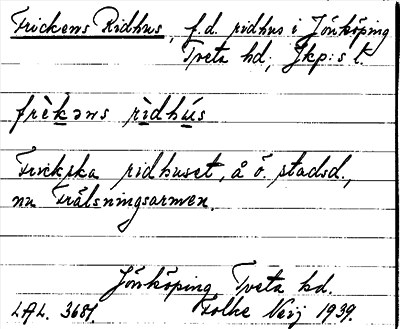 Frickens Ridhus, f.d. ridhus i Jönköping
Tveta hd, Jkp:s l.
frèkəns rìdhús
Frickska ridhuset, å ö. stadsd.,
nu Frälsningsarmen.
Jönköping Tveta hd.
LAL. 3681. Folke 1939.